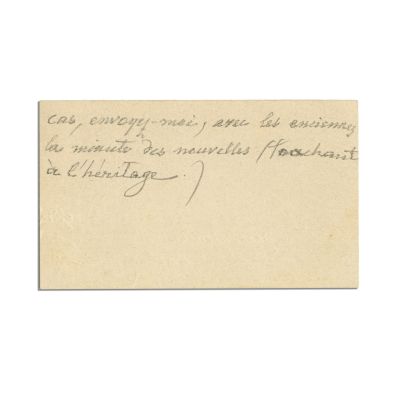 cas, envoyez-moi, avec les anciennes
la minute des nouvelles (touchant
à l'héritage.)